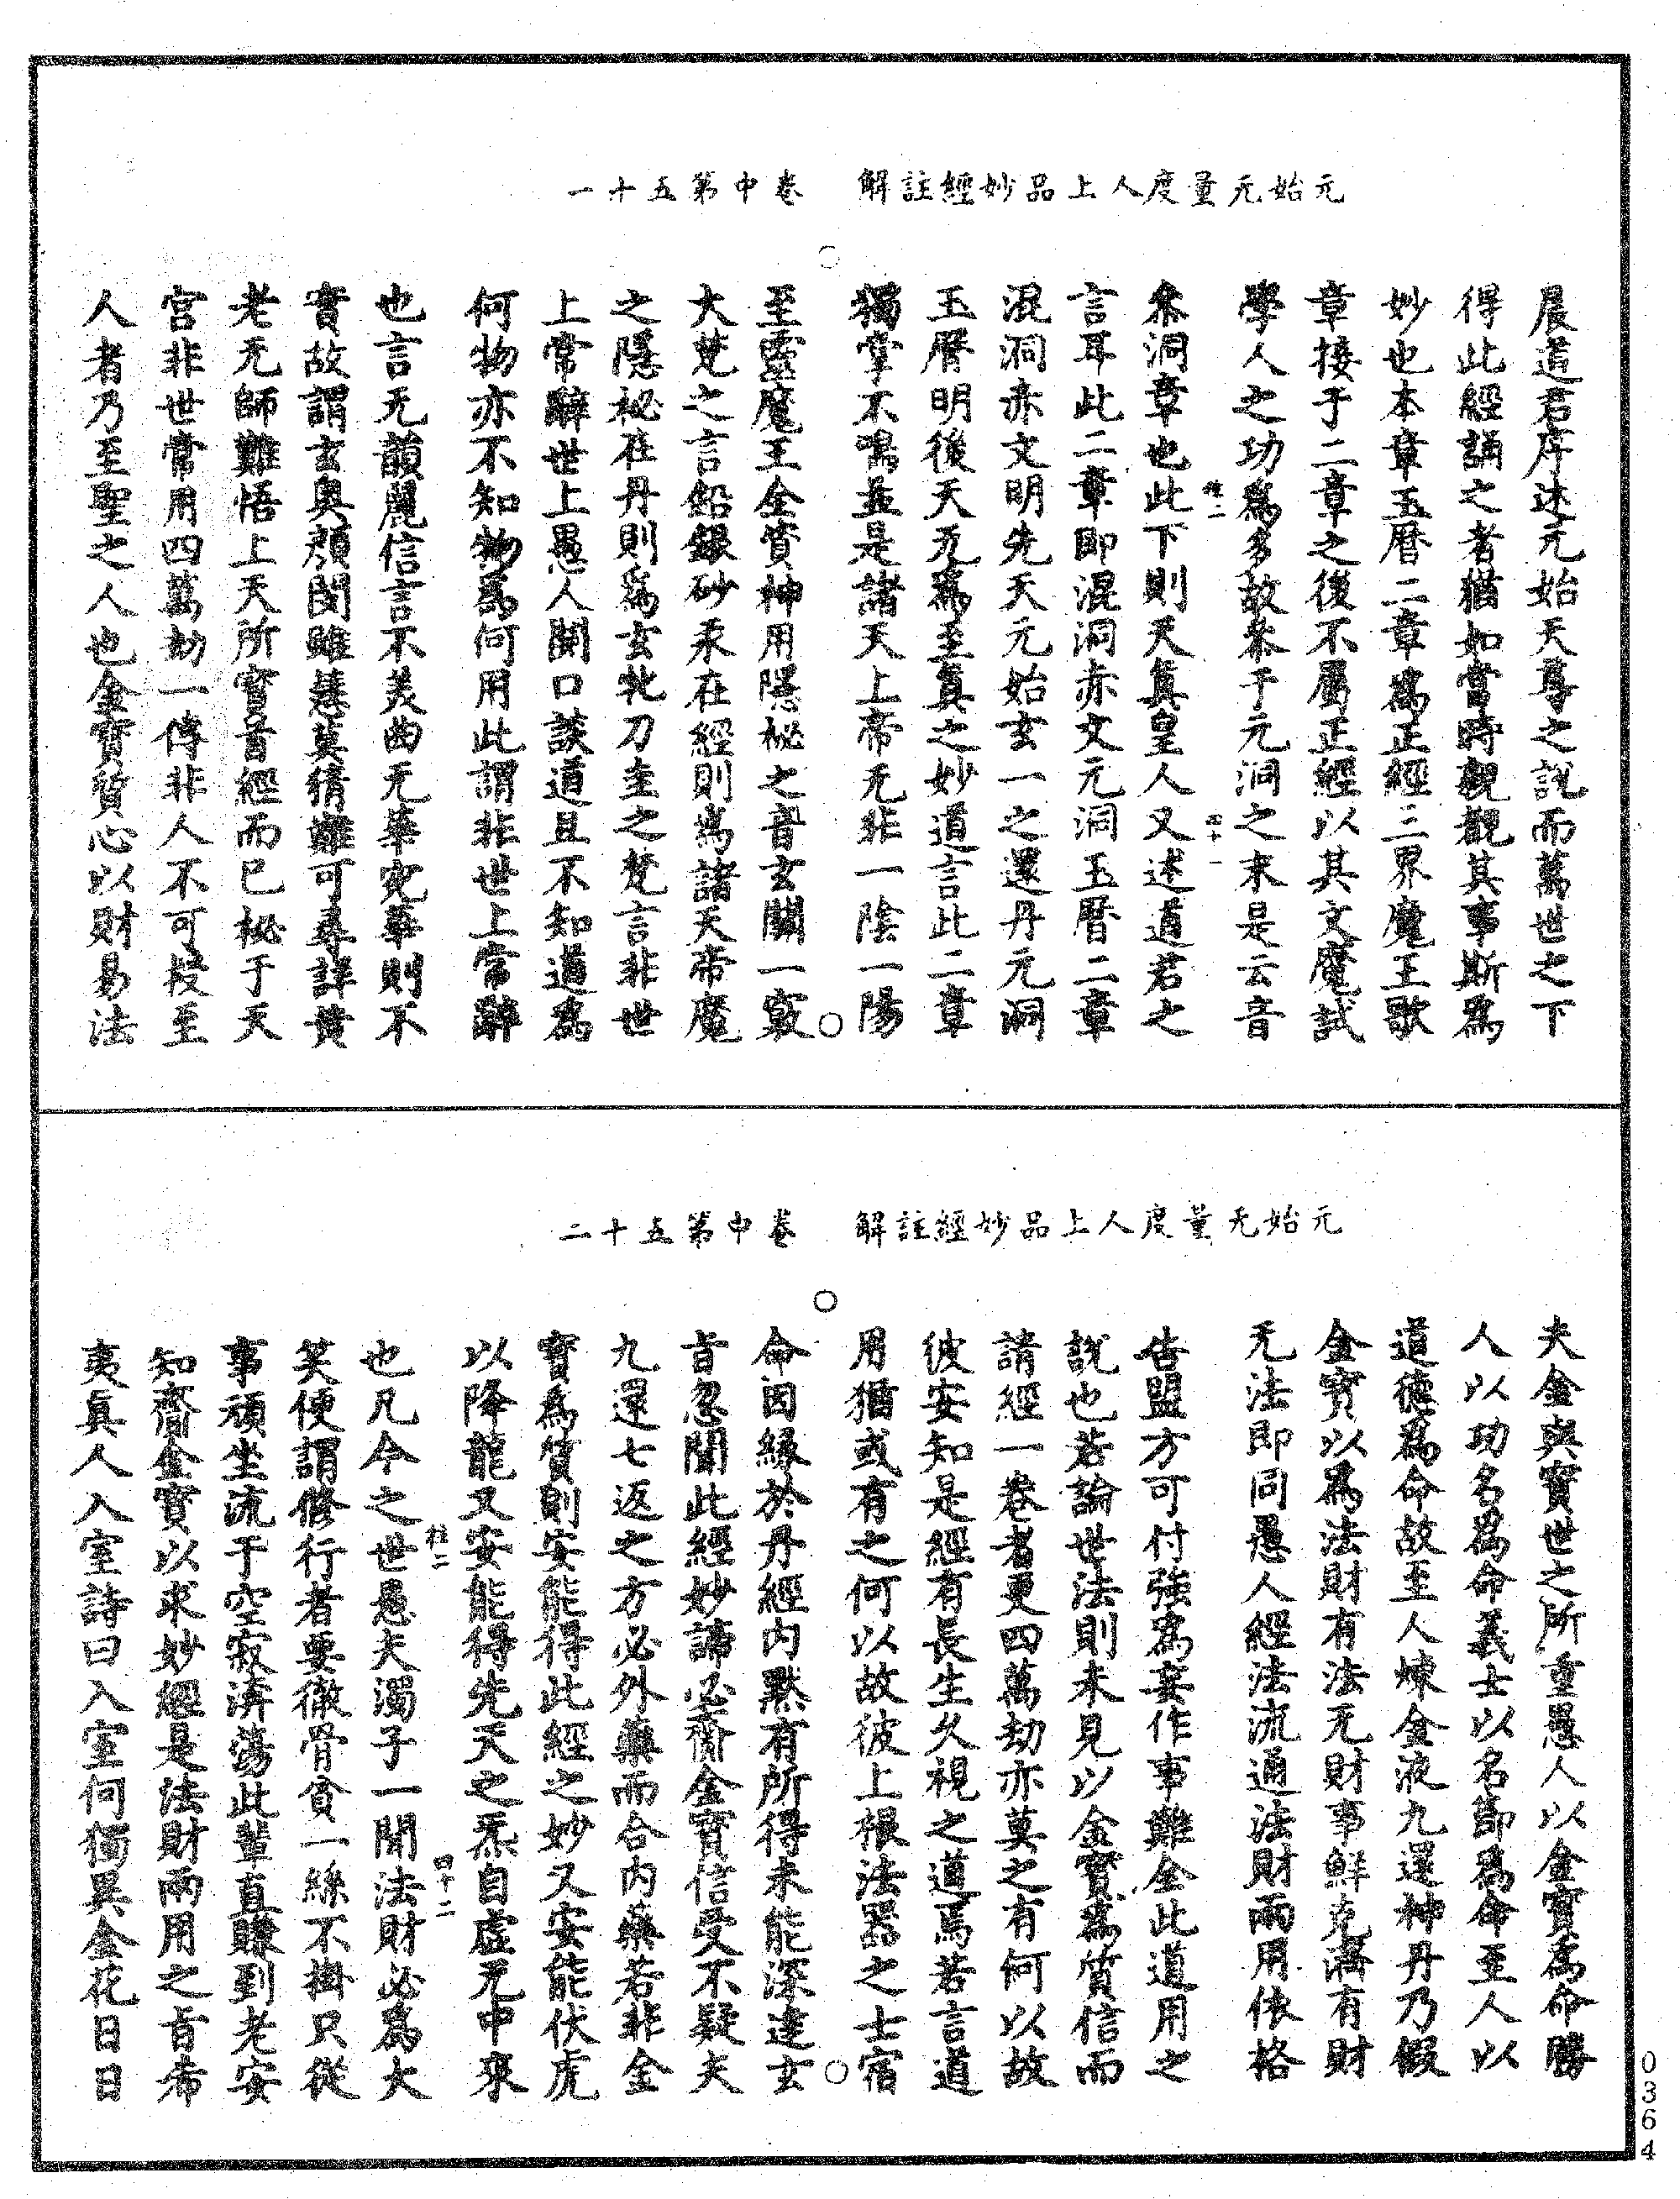 元始无量度人上品妙經註解　卷中第五十一
晨道君序述元始天尊之說而萬世之下
得此經誦之者猶如當時親觀其事斯為
妙也本章玉曆二章為正經三界魔王歌
章接于二章之後不屬正經以其文魔試
學人之功為多故叅于元洞之末是云音
叅洞章也此下則天真皇人又述道君之
言耳此二章即混洞赤文元洞玉曆二章
混洞赤文明先天元始玄一之還丹元洞
玉曆明後天九為至真之妙道言此二章
獨掌不鳴並是諸天上帝无非一陰一陽
至靈魔王金質神用隱秘之音玄關一竅
大梵之言鉛銀砂汞在經則為諸天帝魔
之隱秘在丹則為玄牝刀圭之梵言非世
上常辭世上愚人開口談道且不知道為
何物亦不知物為何用此謂非世上常辭
也言无韻麗信言不美曲无華宛華則不
實故謂玄奧難聞雖慧莫猜難可尋詳黃
老无師難悟上天所寶音經而已秘于天
宮非世常用四萬劫一傳非人不可授至
人者乃至聖之人也金寶質心以財易法
元始无量度人上品妙經註解　卷中第五十二
夫金與寶世之所重愚人以金寶為命勝
人以功名為命義士以名節為命至人以
道德為命故至人煉金液九還神丹乃假
金寶以為法財有法无財事鮮克濟有財
无法即同愚人經法流通法財兩用依格
告盟方可付強為妄作事難全此道用之
說也若論世法則未見以金寶為質信而
請經一卷者更四萬劫亦莫之有何以故
彼安知是經有長生久視之道焉若言道
用猶或有之何以故彼上根法器之士宿
命因緣於丹經內默有所得未能深達玄
旨忽聞此經妙諦必齎金寶信受不疑夫
九還七返之方必外藥而合內藥若非金
寶為質則安能得此經之妙又安能伏虎
以降龍又安能得先天之炁自虛无中來
也凡今之世愚夫濁子一聞法財必為大
笑便謂修行者要徹骨貧一絲不掛只從
事頑坐流于空寂漭蕩此輩直賺到老安
知齎金寶以求妙經是法財兩用之旨希
夷真人入室詩曰入室何獨異金花日日
0364